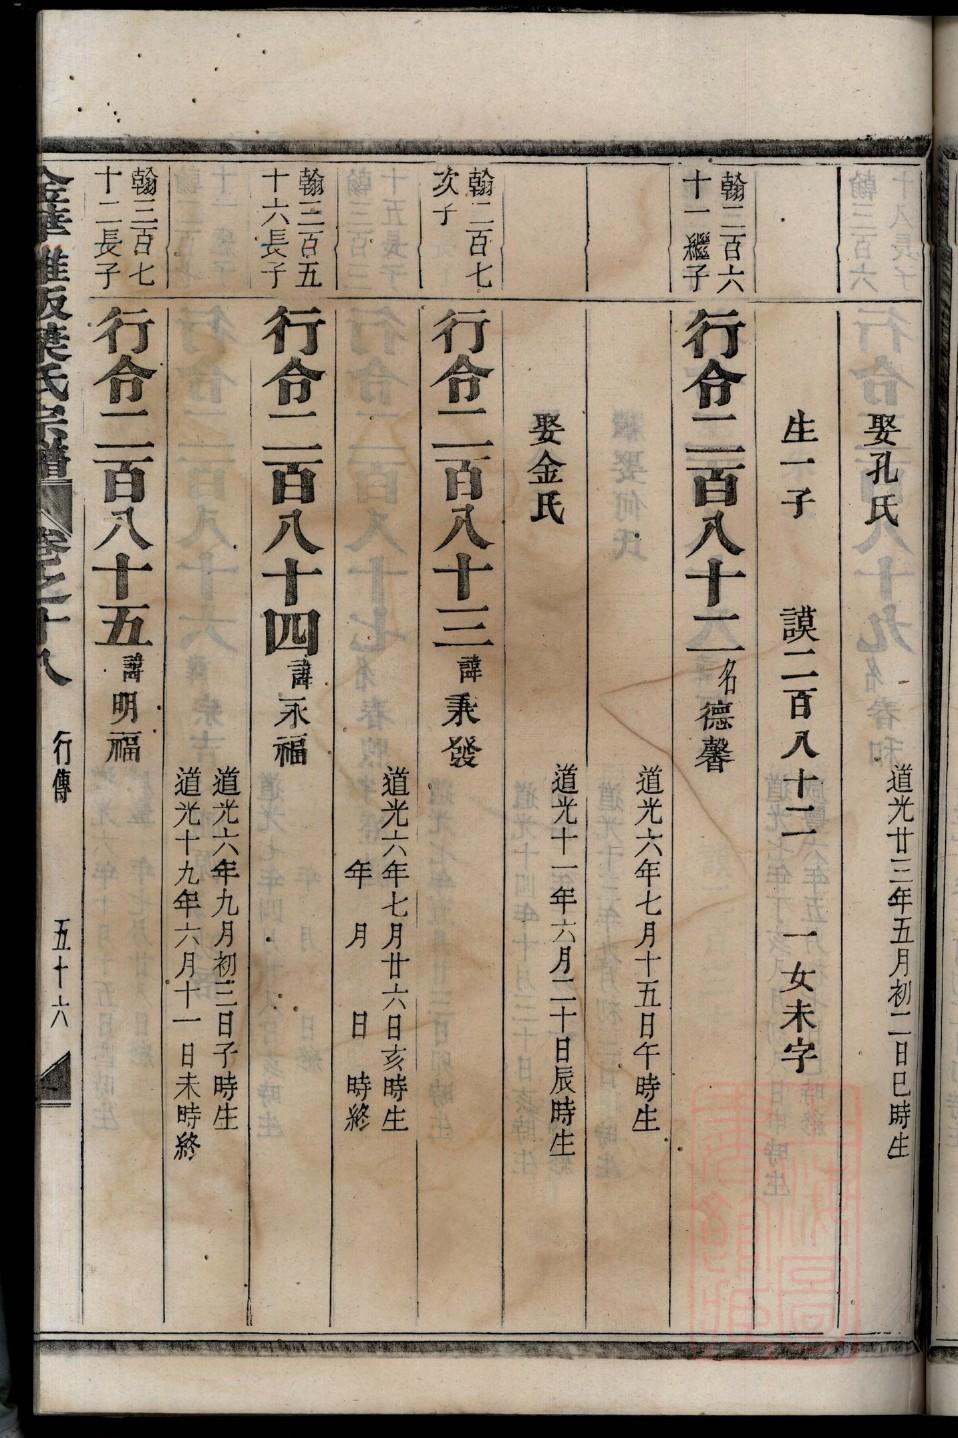 娶孔氏 道光廿三年五月初二日巳時生
生一子 謨二百八十二 一女未字
翰三百六
十一繼子
行令二百八十二 名德馨
道光六年七月十五日午時生
娶金氏 道光十一年六月二十日辰時生
翰二百七
次子
行令二百八十三 諱秉發
道光六年七月廿六日亥時生
年 月 日 時終
翰三百五
十六長子
行令二百八十四 諱永福
道光六年九月初三日子時生
道光十九年六月十一日未時終
翰三百七
十二長子
行令二百八十五 諱明福
金華 葉氏宗譜 卷之十八 行傳 五十六